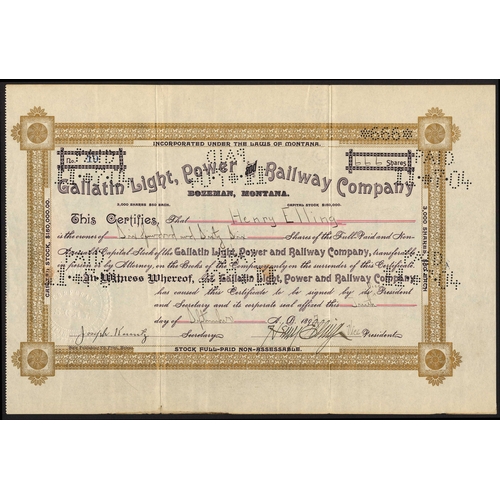 *666*
INCORPORATED UNDER THE LAWS OF MONTANA.
666 Shares
Gallatin Light, Power and Railway Company
BOZEMAN, MONTANA.
CAPITAL STOCK
This Certifies, That Henry Elling
is the owner of Six hundred and Sixty Six Shares of the Full-Paid and Non-
Capital Stock of the Gallatin Light, Power and Railway Company, transferable
by Attorney, on the Books of the Company only on the surrender of this Certificate.
In Witness Whereof, the Gallatin Light, Power and Railway Company,
has caused this Certificate to be signed by its President
and Secretary and its corporate seal affixed this
day of September A. D. 189
Joseph Secretary President
STOCK FULL-PAID NON-ASSESSABLE.
CAPITAL STOCK, $150,000.00.
3,000 SHARES,